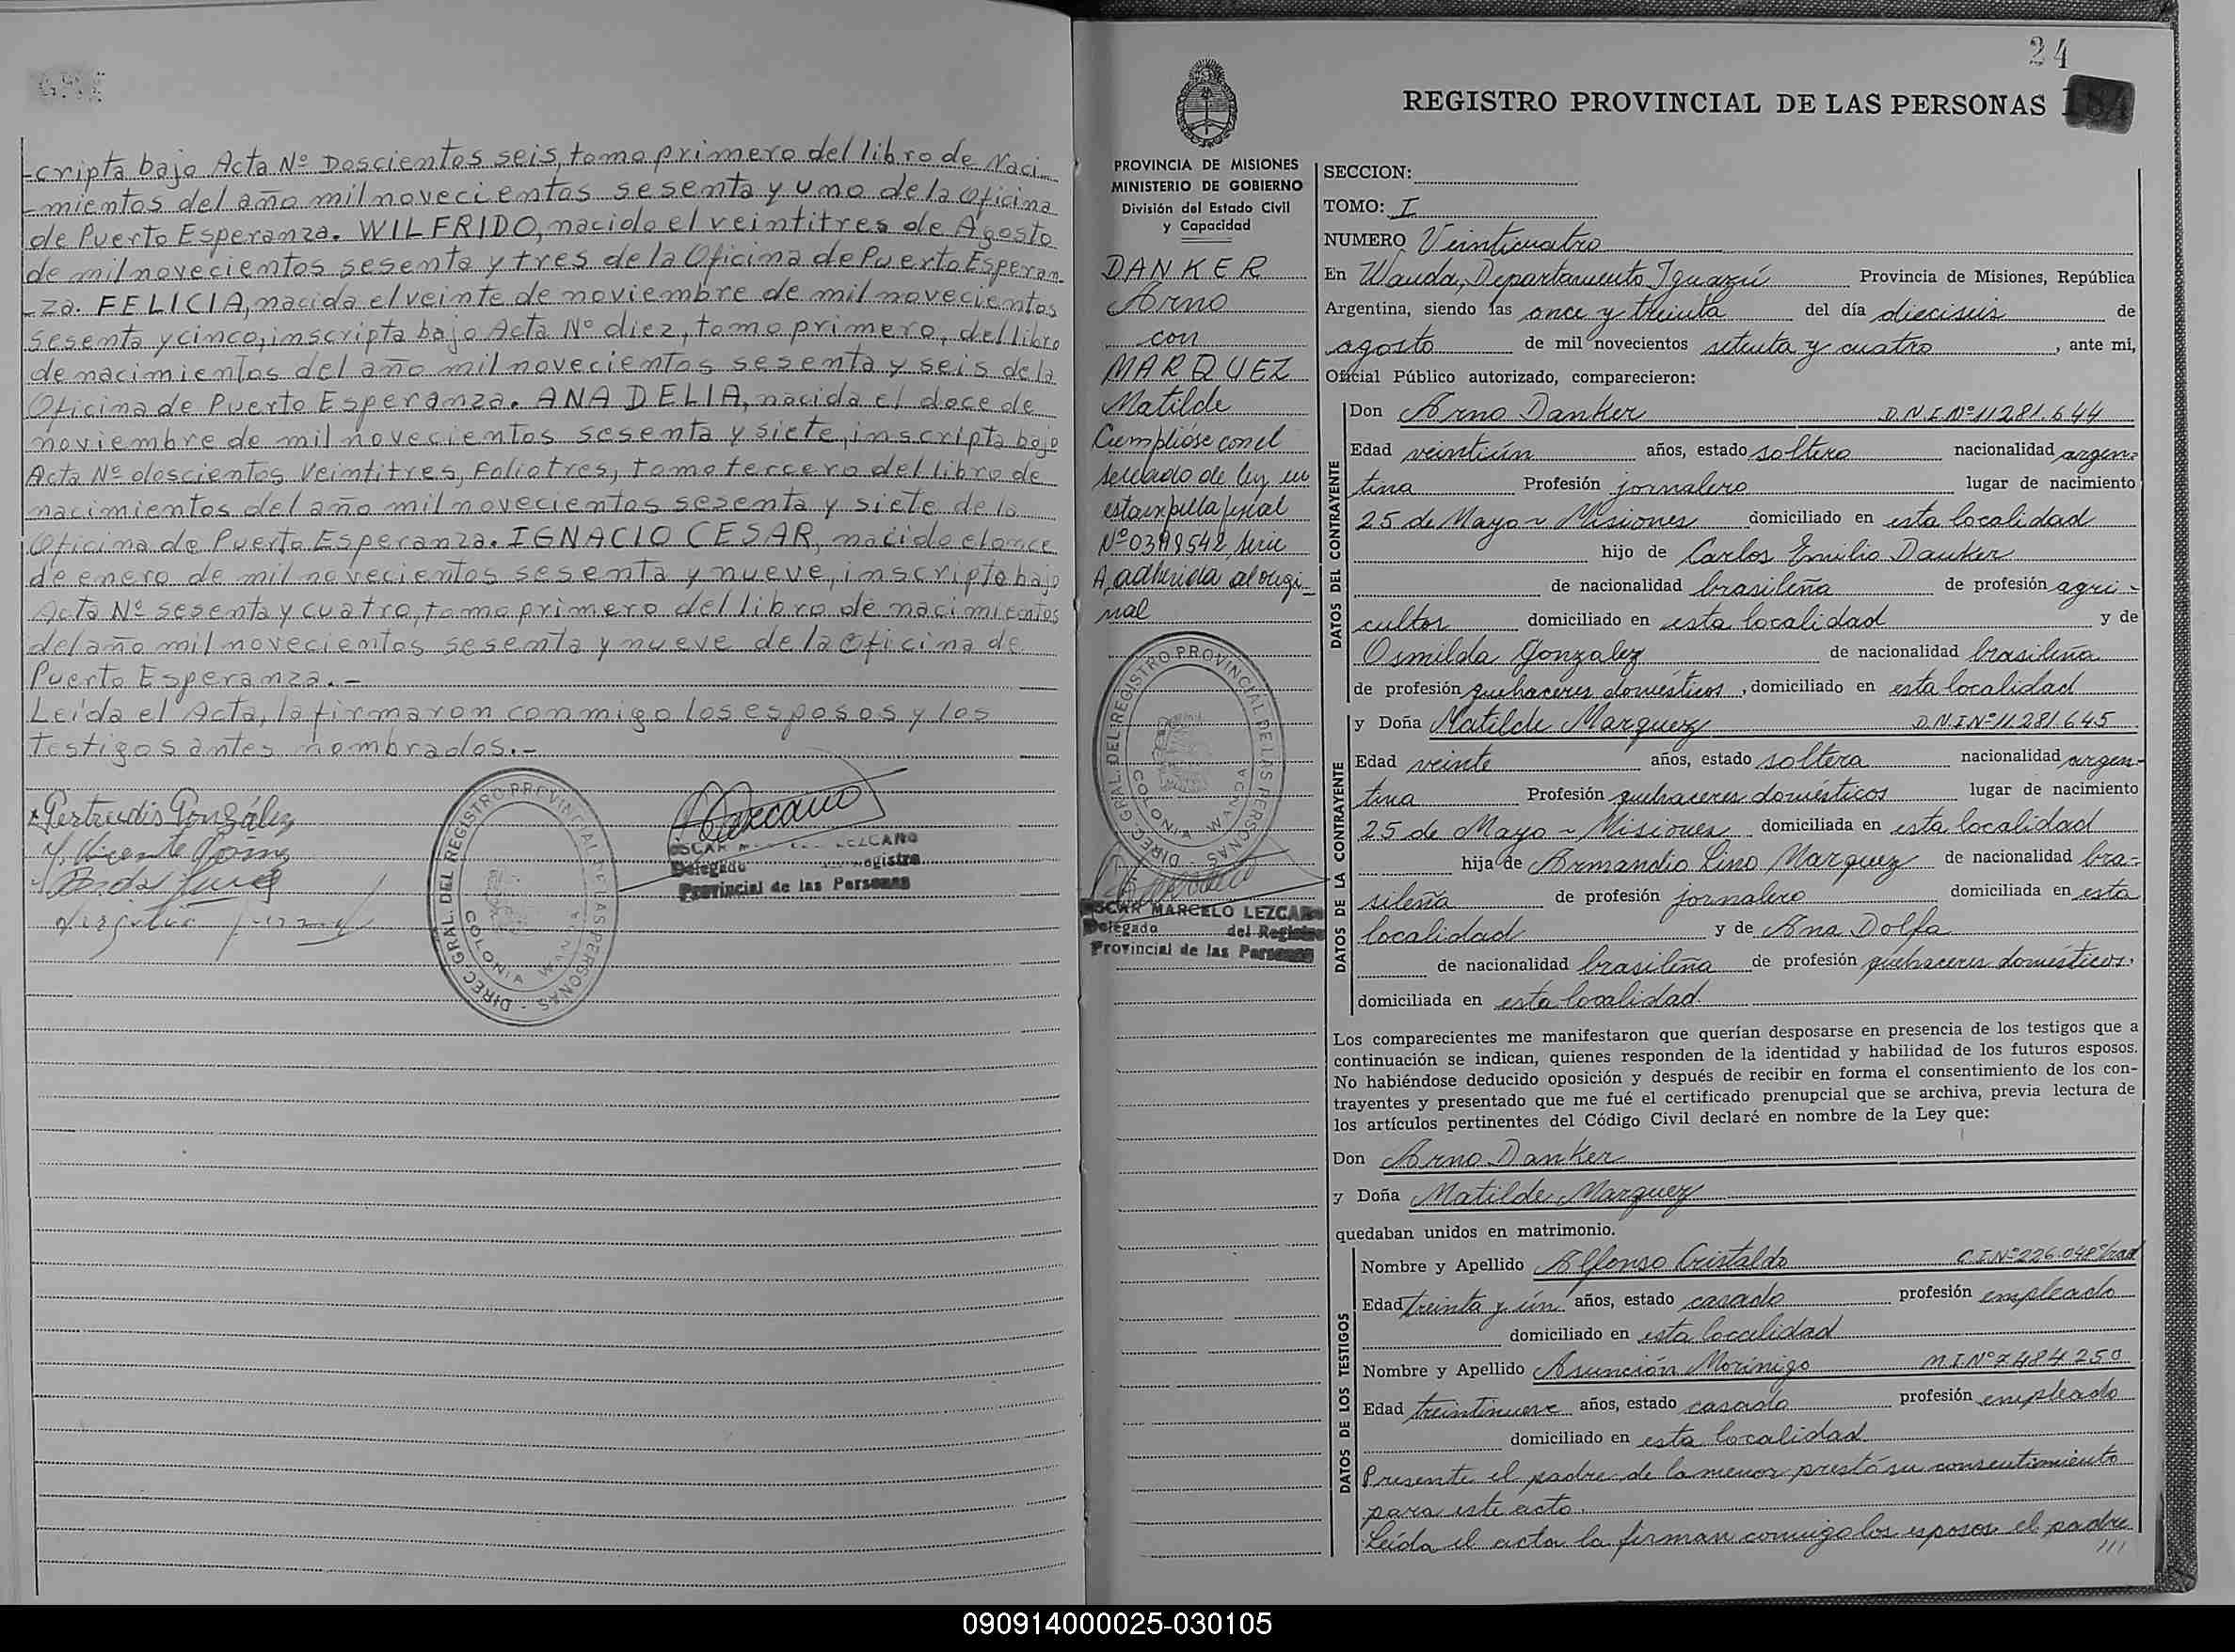 -cripta bajo Acta Nº Doscientos seis, tomo primero del libro de Naci-
-mientos del año mil novecientos sesenta y uno de la Oficina
de Puerto Esperanza. WILFRIDO, nacido el veintitres de Agosto
de mil novecientos sesenta y tres de la Oficina de Puerto Esperan-
-za. FELICIA, nacida el veinte de noviembre de mil novecientos
sesenta y cinco, inscripta bajo Acta Nº diez, tomo primero, del libro
de nacimientos del año mil novecientos sesenta y seis de la
Oficina de Puerto Esperanza. ANA DELIA, nacida el doce de
noviembre de mil novecientos sesenta y siete, inscripta bajo
Acta Nº doscientos Veintitres, Folio tres, tomo tercero del libro de
nacimientos del año mil novecientos sesenta y siete de la
Oficina de Puerto Esperanza. IGNACIO CESAR, nacido el once
de enero de mil novecientos sesenta y nueve, inscripto bajo
Acta Nº sesenta y cuatro, tomo primero del libro de nacimientos
del año mil novecientos sesenta y nueve de la Oficina de
Puerto Esperanza.-
Leída el Acta, la firmaron conmigo los esposos y los
testigos antes nombrados.-
Gertrudis González
DIREC. GRAL. DEL REGISTRO PROVINCIAL DE LAS PERSONAS
COLONIA WANDA
OSCAR LEZCANO
Delegado Registro
Provincial de las Personas
24
REGISTRO PROVINCIAL DE LAS PERSONAS
PROVINCIA DE MISIONES
MINISTERIO DE GOBIERNO
División del Estado Civil
y Capacidad
DANKER
Arno
con
MARQUEZ
Matilde
Cumplióse con el
sellado de ley en
estampilla fiscal
Serie
A, adherida al origi-
nal
DIREC. GRAL. DEL REGISTRO PROVINCIAL DE LAS PERSONAS
COLONIA WANDA
OSCAR MARCELO LEZCANO
Delegado del Registro
Provincial de las Personas
SECCION:
TOMO: I
NUMERO Veinticuatro
En Wanda, Departamento Iguazú Provincia de Misiones, República
Argentina, siendo las once y treinta del día dieciseis de
agosto de mil novecientos setenta y cuatro, ante mi,
Oficial Público autorizado, comparecieron:
DATOS DEL CONTRAYENTE
Don Arno Danker D.N.I.Nº11.281.644
Edad veintiún años, estado soltero nacionalidad argen-
tina Profesión jornalero lugar de nacimiento
25 de Mayo ~ Misiones domiciliado en esta localidad
hijo de Carlos Emilio Danker
de nacionalidad brasileña de profesión agri-
cultor domiciliado en esta localidad y de
Osmilda Gonzalez de nacionalidad brasileña
de profesión quehaceres domésticos, domiciliado en esta localidad
DATOS DE LA CONTRAYENTE
y Doña Matilde Marquez D.N.I.Nº11.281.645
Edad veinte años, estado soltera nacionalidad argen-
tina Profesión quehaceres domésticos lugar de nacimiento
25 de Mayo ~ Misiones domiciliada en esta localidad
hija de Armandio Lino Marquez de nacionalidad bra-
sileña de profesión jornalero domiciliada en esta
localidad y de Ana Dolfa
de nacionalidad brasileña de profesión quehaceres domésticos.
domiciliada en esta localidad.
Los comparecientes me manifestaron que querían desposarse en presencia de los testigos que a
continuación se indican, quienes responden de la identidad y habilidad de los futuros esposos.
No habiéndose deducido oposición y después de recibir en forma el consentimiento de los con-
trayentes y presentado que me fué el certificado prenupcial que se archiva, previa lectura de
los artículos pertinentes del Código Civil declaré en nombre de la Ley que:
Don Arno Danker
y Doña Matilde Marquez
quedaban unidos en matrimonio.
DATOS DE LOS TESTIGOS
Nombre y Apellido Alfonso Cristaldo C.I.Nº226.048
Edad treinta y ún años, estado casado profesión empleado
domiciliado en esta localidad
Nombre y Apellido Asunción Morínigo M.I.Nº7.484.250
Edad treintinueve años, estado casado profesión empleado
domiciliado en esta localidad
Presente el padre de la menor prestó su consentimiento
para este acto.
Leída el acta la firman conmigo los esposos el padre
///
090914000025-030105